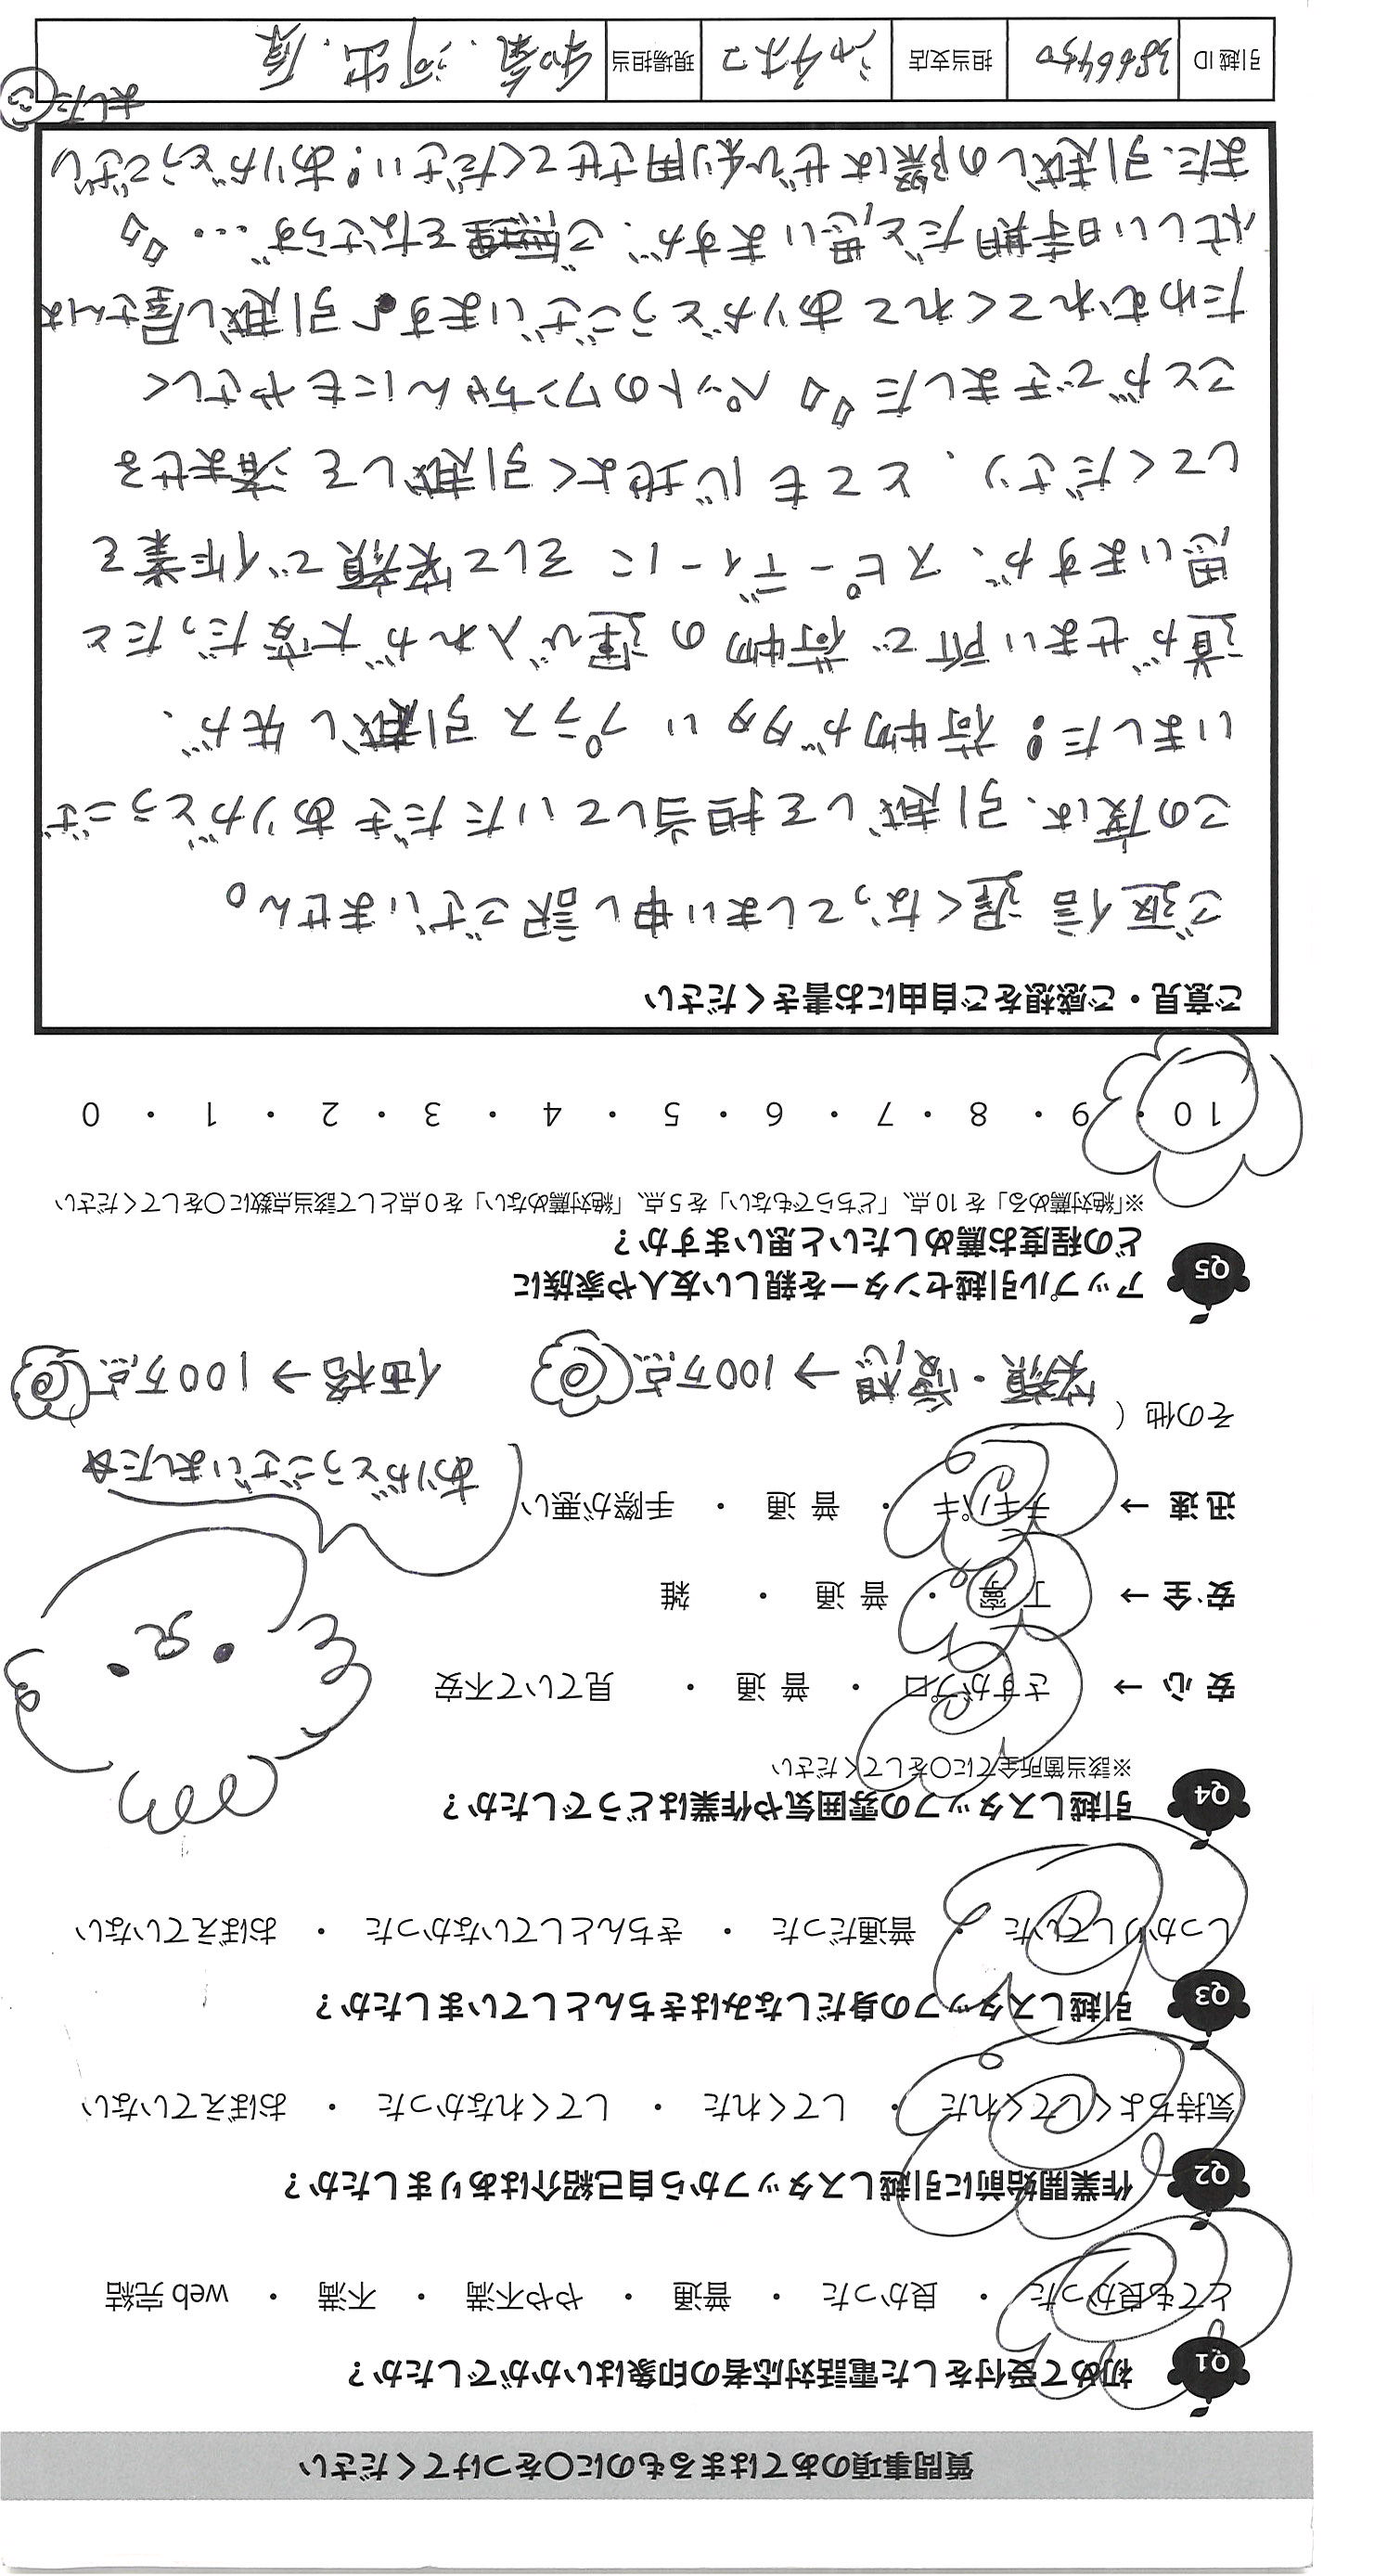 質問事項のあてはまるものに○をつけてください
Q1 初めて受付をした電話対応者の印象はいかがでしたか？
とても良かった ・ 良かった ・ 普通 ・ やや不満 ・ 不満 ・ web 完結
Q2 作業開始前に引越しスタッフから自己紹介はありましたか？
気持ちよくしてくれた ・ してくれた ・ してくれなかった ・ おぼえていない
Q3 引越しスタッフの身だしなみはきちんとしていましたか？
しっかりしていた ・ 普通だった ・ きちんとしていなかった ・ おぼえていない
Q4 引越しスタッフの雰囲気や作業はどうでしたか？
※該当箇所全てに○をしてください
安 心 → さすがプロ ・ 普 通 ・ 見ていて不安
安 全 → 丁 寧 ・ 普 通 ・ 雑
迅 速 → テキパキ ・ 普 通 ・ 手際が悪い
ありがとうございました☆
その他（ 笑顔・愛想 → 100万点 価格 → 100万点 ）
Q5 アップル引越センターを親しい友人や家族に
どの程度お薦めしたいと思いますか？
※「絶対薦める」を 10 点、「どちらでもない」を 5 点、「絶対薦めない」を 0 点として該当点数に○をしてください
10 ・ 9 ・ 8 ・ 7 ・ 6 ・ 5 ・ 4 ・ 3 ・ 2 ・ 1 ・ 0
ご意見・ご感想をご自由にお書きください
ご返信遅くなってしまい申し訳ございません。
この度は、引越しを担当していただきありがとうござ
いました！荷物が多い プラス 引越し先が、
道がせまい所で荷物の運び入れが大変だったと
思いますが、スピーディーに そして笑顔で作業を
してくださり、とても心地よく引越しを済ませる
ことができました ペットのワンちゃんにもやさしく
たわむれてくれてありがとうございます♪引越し屋さんは
忙しい時期だと思いますが、ご無理をなさらず…
また、引越しの際はぜひ利用させてください！ありがとうござい
ました
引越 ID 3866450 担当支店 現場担当 和氣、河出、原